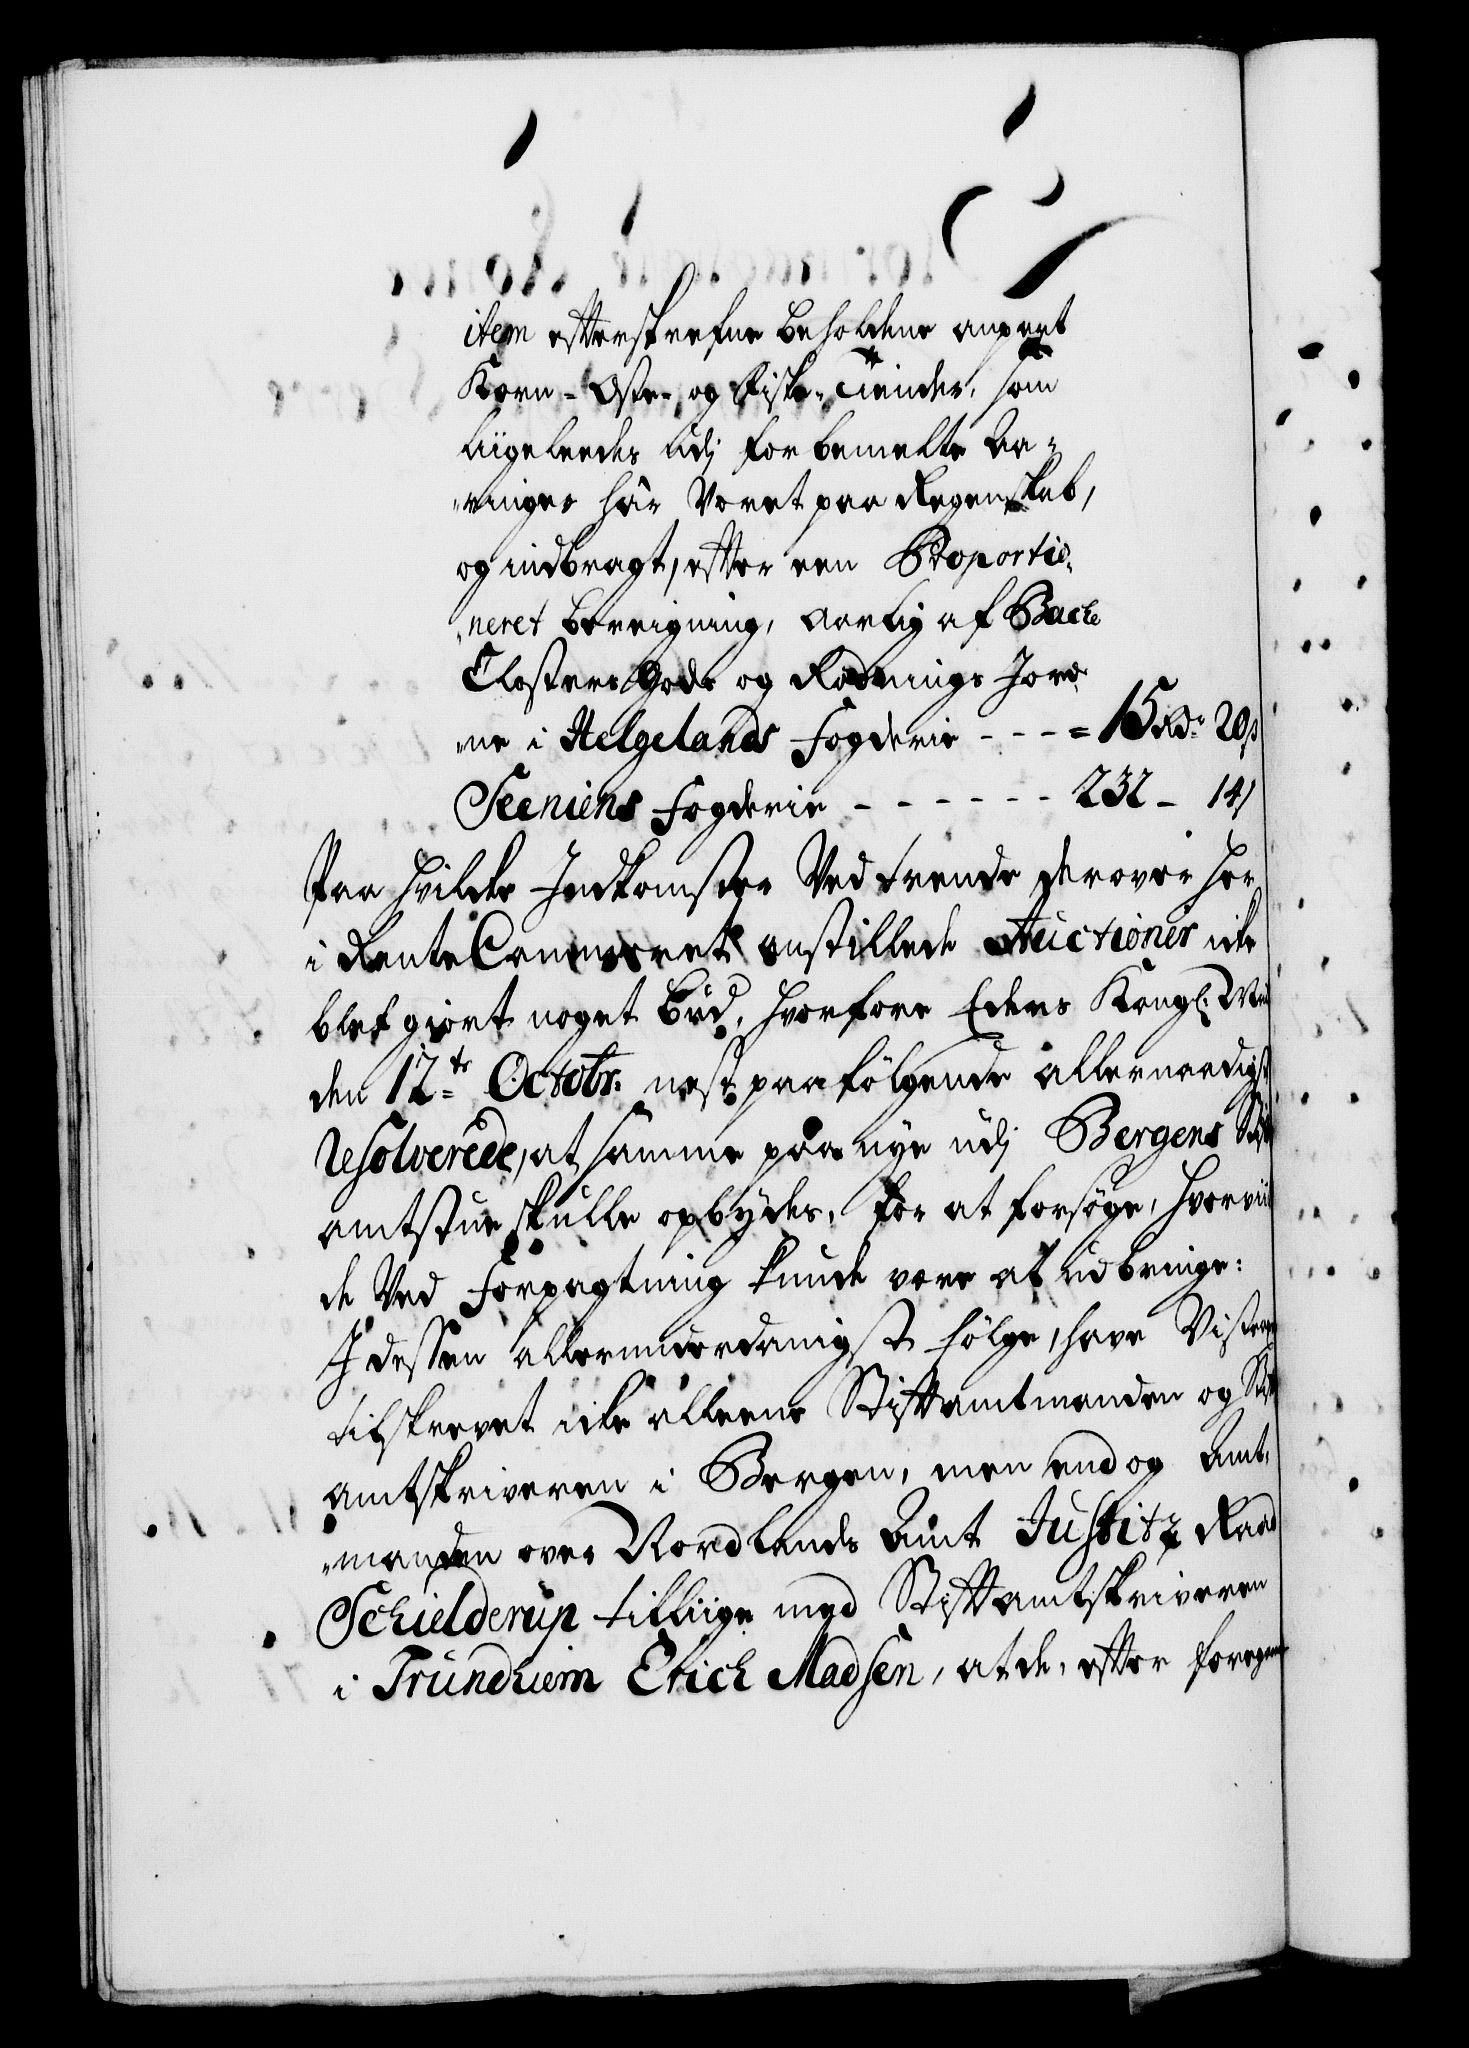 item efterskrefne beholdene anpart
Korn- Oste- og Fiske-Tiender, som
liigeleedes udj forbemelte Aa-
ringer har Veret paa Regenskab,
og indbragt, efter een Proportio-
neret bereigning, aarlig af Bache
Closters Gods og Rødnings Jord-
ne i Helgelands Fogderie - - - = 15 Rdr 20 s
Seeniens Fogderie - - - - - - 232 - 14
Paa hvilcke Indkomster Ved trende derover her
i Rente Cammeret anstillede Auctioner icke
blef giort noget bud, hvorfore Eders Kongl: May
den 12te Octobr. nest paafölgende allernaadigst
Resolverede, at samme paa nye udj Bergens Stift
amtstue skulle opbydes, for at forsöge, hvorvii
de Ved Forpagtning kunde være at udbringe:
I dessen allerunderdanigst fölge, have Vi
tilskrevet icke alleene Stiftamtmanden og Stift
amtskriveren i Bergen, men endog Amt-
manden over Nordlands Amt Justitz Raad
Schielderup tilliige med Stiftamtskriveren
i Trundhiem Erich Madsen, at de, efter